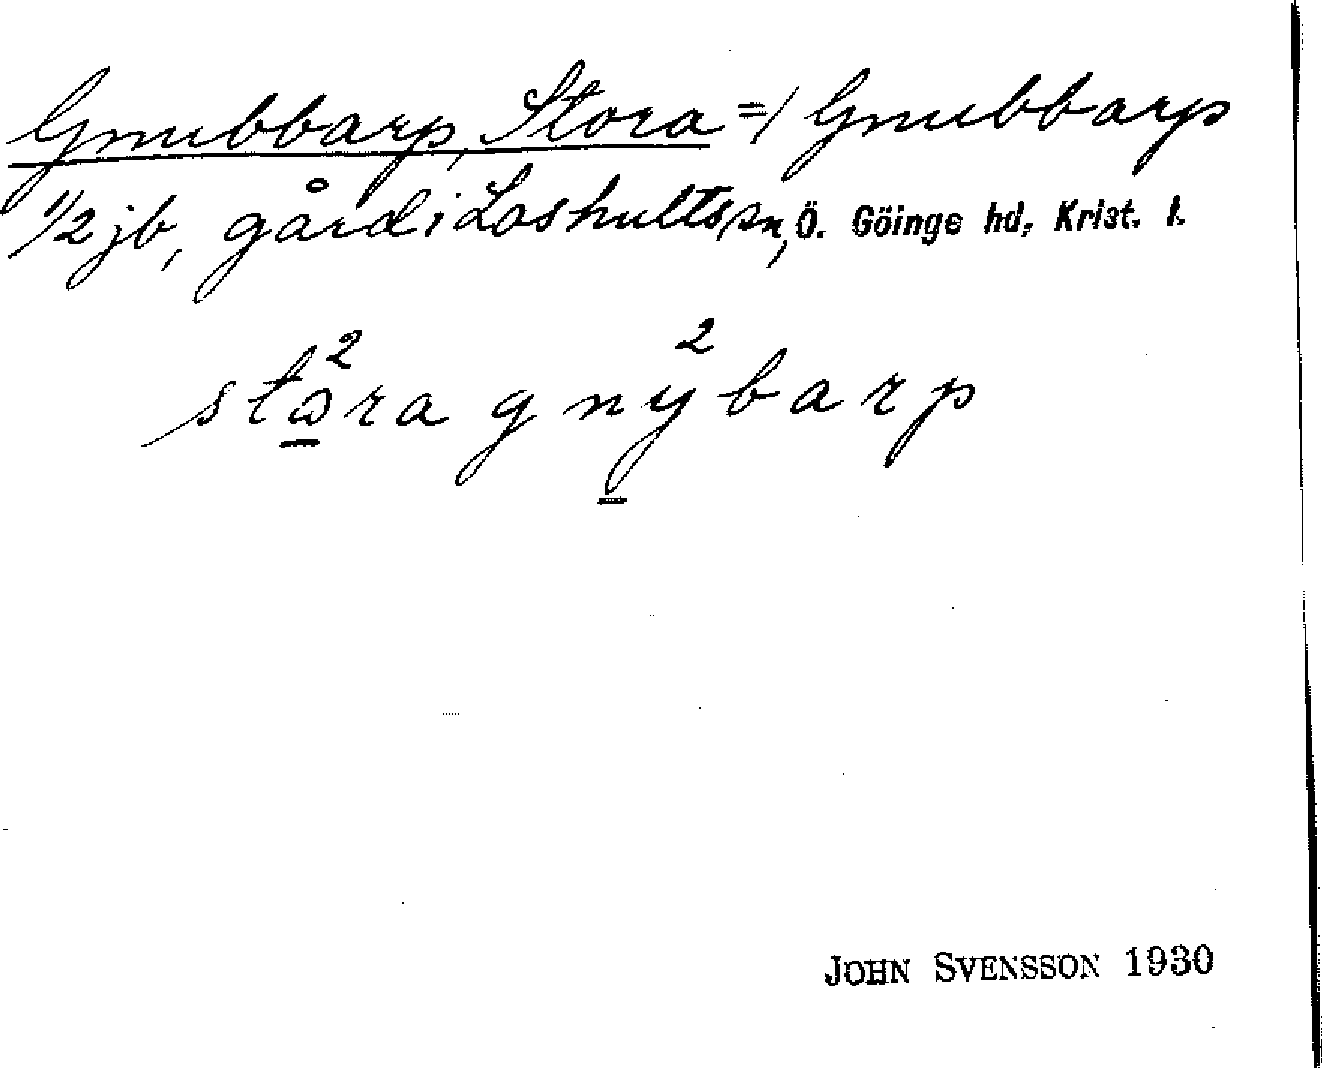 Gnubbarp, Stora =/ Gnubbarp
1/2 jb, gård i Loshults sn, Ö. Göinge hd, Krist. l.
stω²ra gny²barp
JOHN SVENSSON 1930